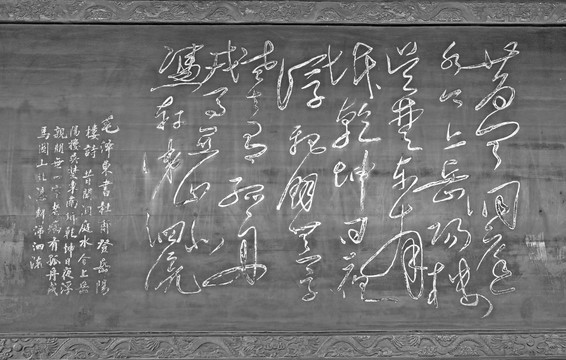 昔闻洞庭
水今上岳阳楼
吴楚东南
坼乾坤日夜
浮親朋無一字
老去有孤舟
戎马关山北
凭轩涕泗流
毛澤東書杜甫登岳陽
樓詩 昔聞洞庭水今上岳
陽樓吳楚東南坼乾坤日夜浮
親朋無一字老病有孤舟戎
馬關山北憑軒涕泗流